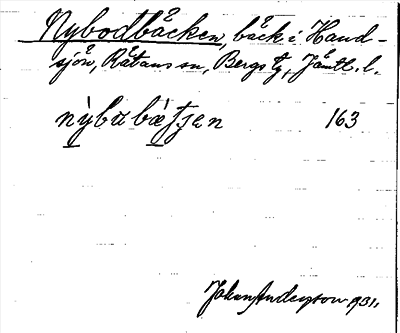 Nybodbäcken, bäck i Hand-
sjön, Rätans sn, Bergs tg, Jämtl. l.
nỳbubæ̀tjen 163
Johan Anderson 1931.